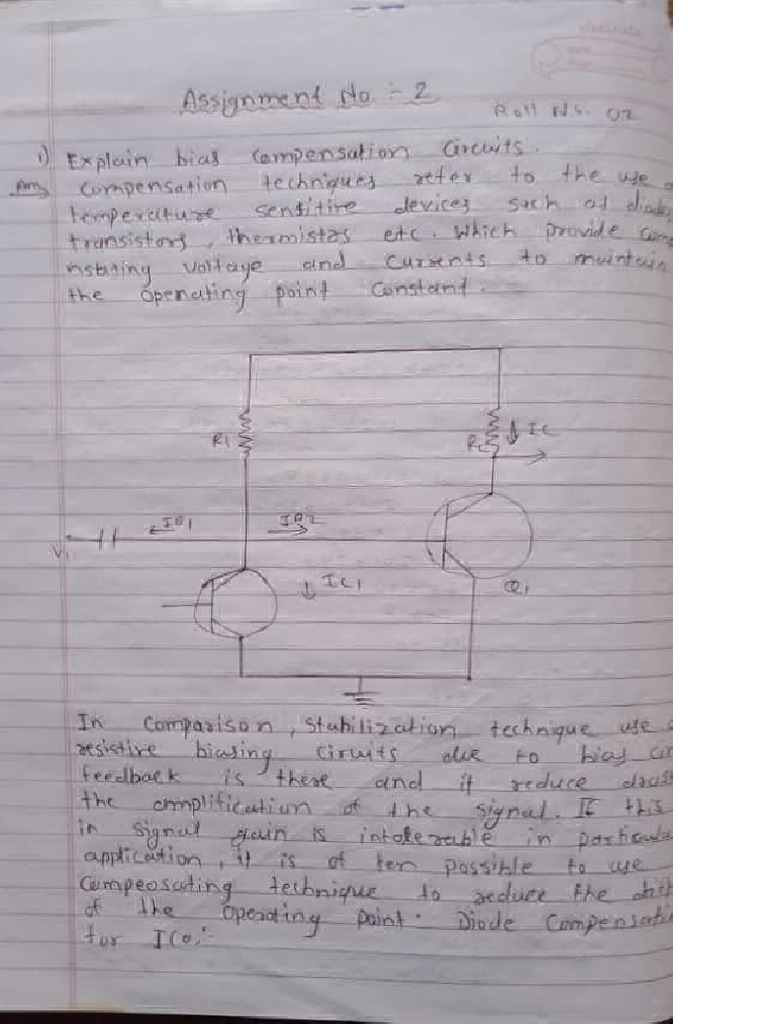 Assignment No :- 2
Roll No. 02
1) Explain bias compensation Circuits.
Ans compensation techniques refer to the use
temperature sensitive devices such as diodes
transistors, thermistas etc. Which provide com
nsating voltage and currents to maintain
the openating point constant.
R1
Rc
IC
IB1
IB2
Vi
IC1
Q1
In comparison, stabilization technique use
resistive biasing circuits due to bias
feedback is there and it reduce
the amplification of the signal. If this
in signal gain is intolerable in particula
application, it is of ten possible to use
Compeosating technique to reduce the
of the operating point. Diode Compensati
for ICO:-